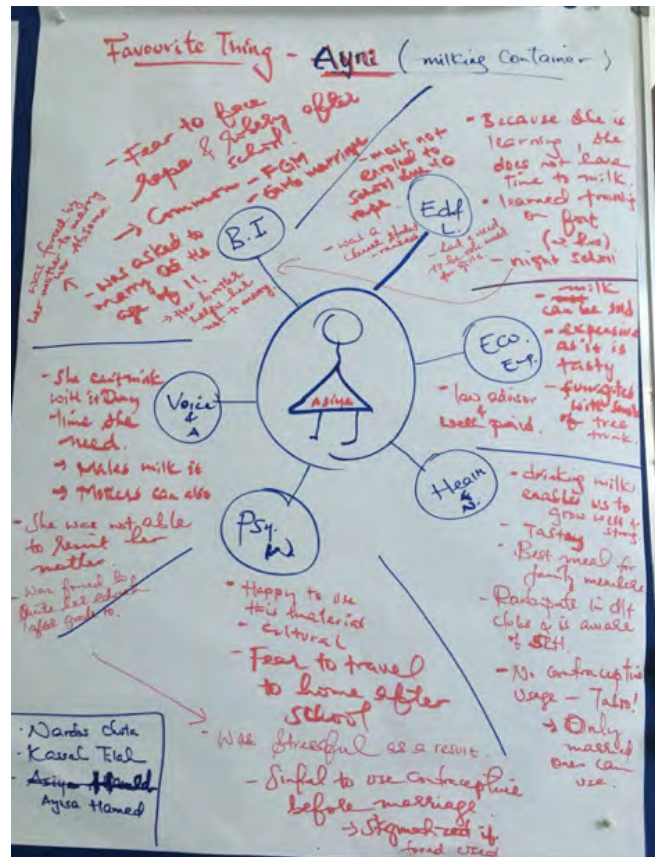 Favourite Thing - Ayni (milking Container)
- Fear to face
rape & after
school.
→ Common - FGM
- Early marriage
- was asked to
marry at the
age of 11.
→ Her brother
helps her
not to marry
was forced by
her mother to marry
B.I
- most not
enrolled to
school due to
rape.
- was a
clever student
Edu
L.
- Because she is
learning, she
does not have
time to milk.
- learned
on foot
- night school
Eco.
Emp.
- milk
can be sold
- expensive
as it is
tasty
- fumigated
with smoke
of tree
trunk.
- law advisor
&
well paid.
ASIYA
Voice
& A
- She can't milk
with it
time she
need.
→ Males milk it
→ Mothers can also
- She was not able
to resist her
mother
- Was forced to
quite her education
after grade 10.
Health
& N.
- drinking milk
enables us to
grow well &
strong.
- Tasty
- Best meal for
family members
- Participate in d/t
clubs & is aware
of
- No contraceptive
usage - Taboo!
→ Only
married
ones can
use.
Psy.
W
- Happy to use
this materials
- cultural
- Fear to travel
to home after
school
- Was Stressful as a result.
- Sinful to use contraceptive
before marriage.
→ Stigmatized if
found used
- Nardos
- Kassal
- Asiya
Ayisa Hamed